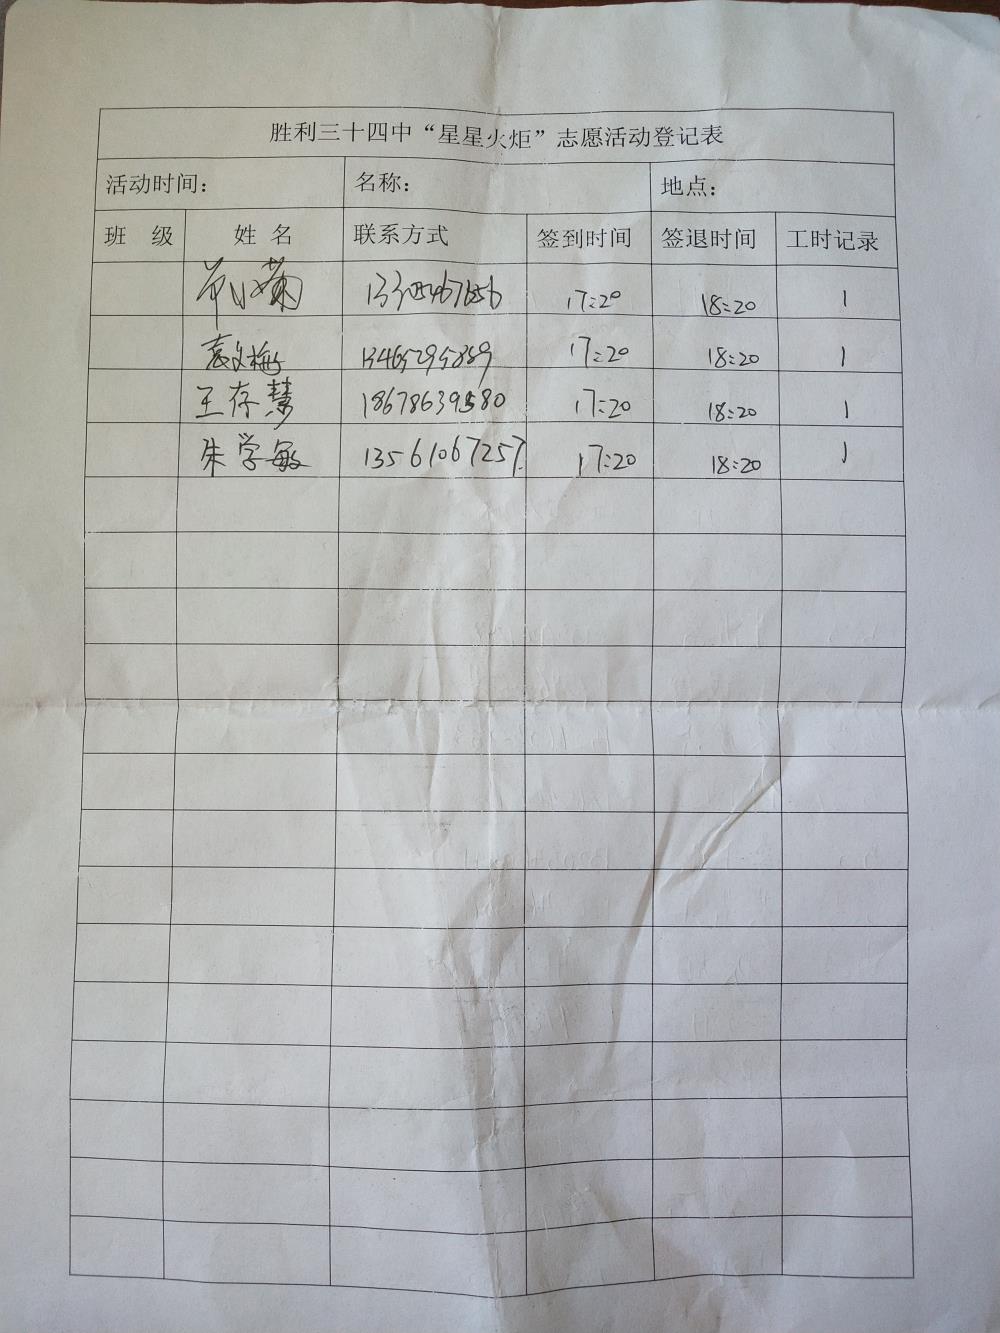 胜利三十四中“星星火炬”志愿活动登记表
活动时间： 名称： 地点：
班 级 姓 名 联系方式 签到时间 签退时间 工时记录
17:20 18:20 1
袁文梅 13465295859 17:20 18:20 1
王存慧 18678639580 17:20 18:20 1
朱学敏 13561067257 17:20 18:20 1